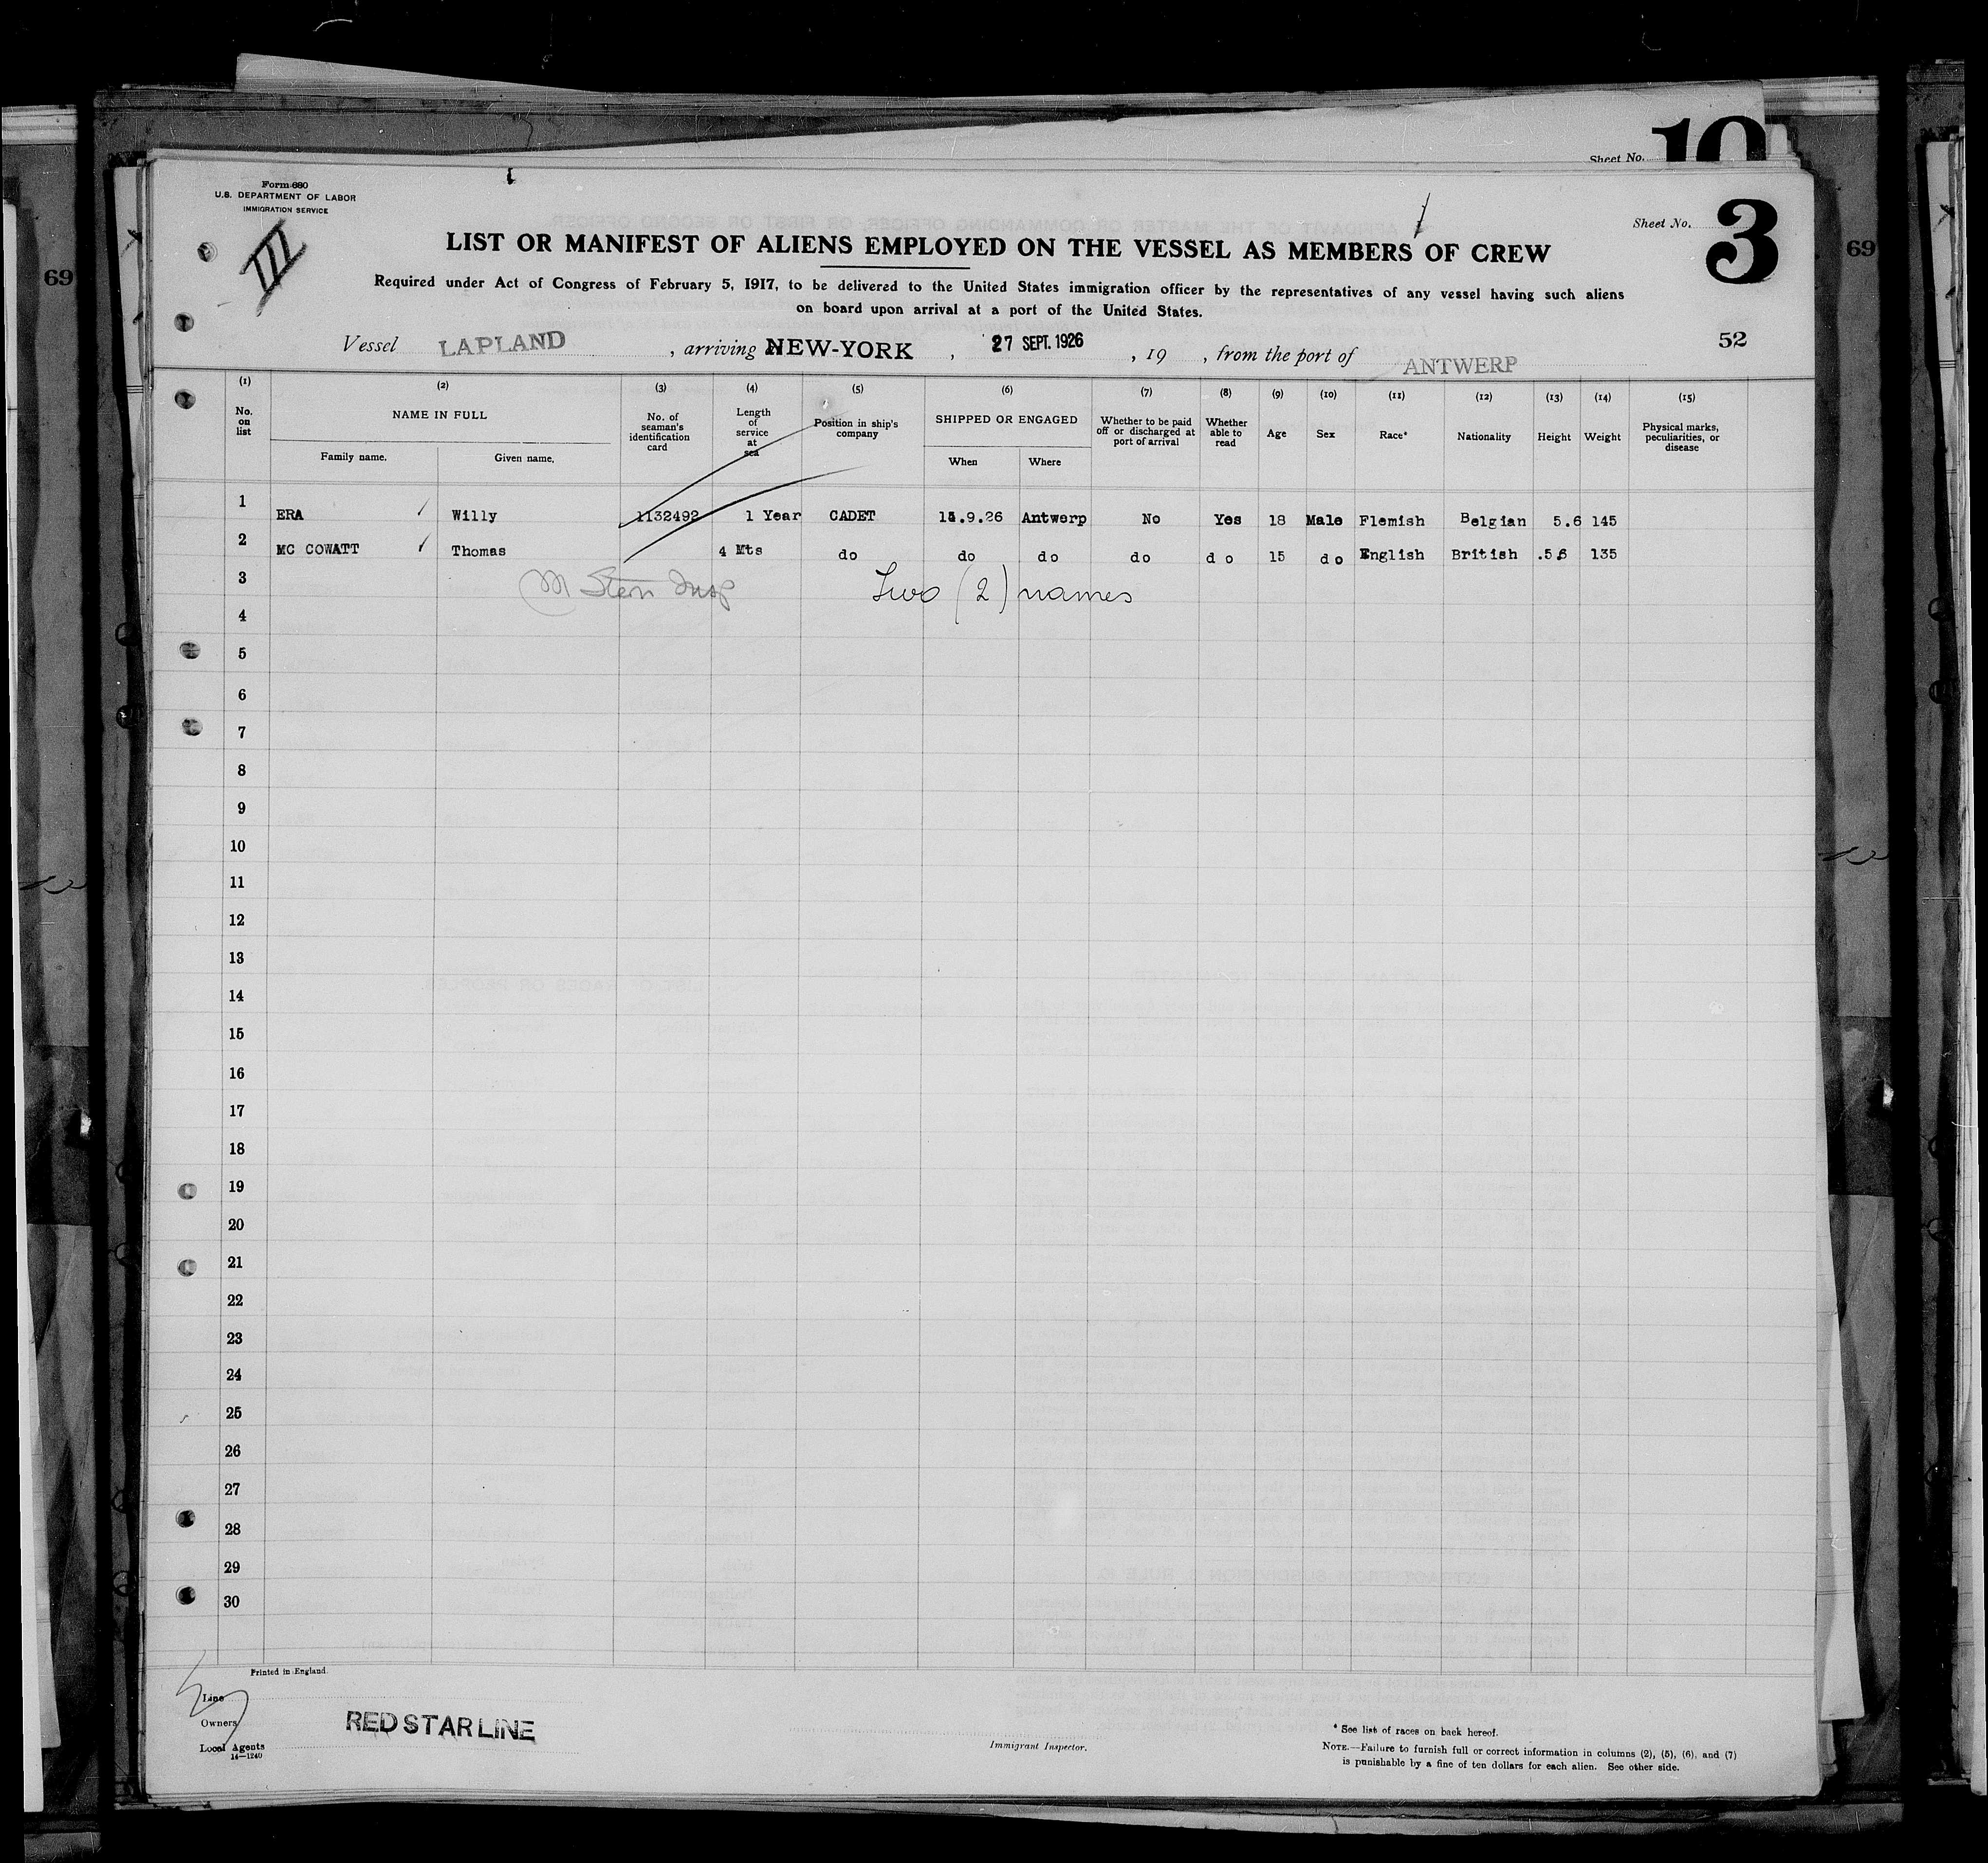 Sheet No. 10
Form 680
U.S. DEPARTMENT OF LABOR
IMMIGRATION SERVICE
III
Sheet No. 3
69
69
LIST OR MANIFEST OF ALIENS EMPLOYED ON THE VESSEL AS MEMBERS OF CREW
Required under Act of Congress of February 5, 1917, to be delivered to the United States immigration officer by the representatives of any vessel having such aliens
on board upon arrival at a port of the United States.
52
Vessel LAPLAND , arriving NEW-YORK , 27 SEPT. 1926 , 19 , from the port of ANTWERP
(1) (2) (3) (4) (5) (6) (7) (8) (9) (10) (11) (12) (13) (14) (15)
No. on list NAME IN FULL Family name. Given name. No. of seaman's identification card Length of service at sea Position in ship's company SHIPPED OR ENGAGED When Where Whether to be paid off or discharged at port of arrival Whether able to read Age Sex Race* Nationality Height Weight Physical marks, peculiarities, or disease
1 ERA Willy 1132492 1 Year CADET 15.9.26 Antwerp No Yes 18 Male Flemish Belgian 5.6 145
2 MC COWATT Thomas 4 Mts do do do do d o 15 d o English British .5 6 135
3 M Stern Insp Two (2) names
4
5
6
7
8
9
10
11
12
13
14
15
16
17
18
19
20
21
22
23
24
25
26
27
28
29
30
Printed in England.
Line
Owners
Local Agents
14—1240
RED STAR LINE
Immigrant Inspector.
* See list of races on back hereof.
NOTE.—Failure to furnish full or correct information in columns (2), (5), (6), and (7)
is punishable by a fine of ten dollars for each alien. See other side.